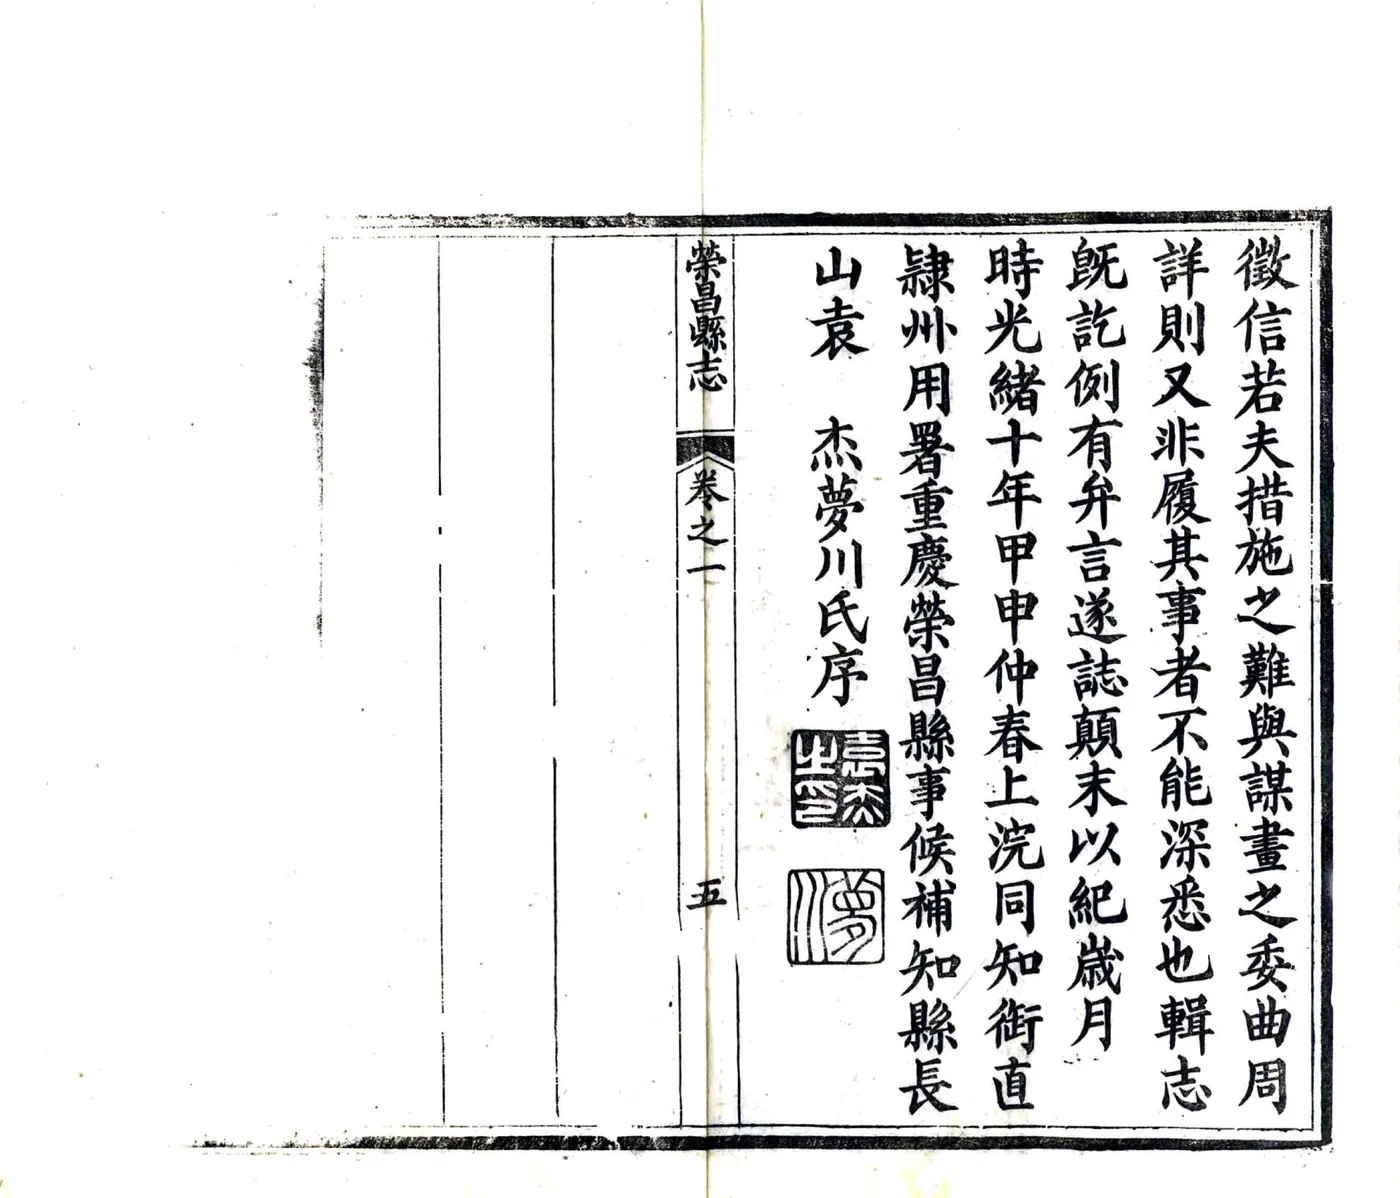 徵信若夫措施之難與謀畫之委曲周
詳則又非履其事者不能深悉也輯志
旣訖例有弁言遂誌顛末以紀歲月
時光緒十年甲申仲春上浣同知銜直
隸州用署重慶榮昌縣事候補知縣長
山袁　杰夢川氏序
袁杰之印
夢川
榮昌縣志　卷之一　五